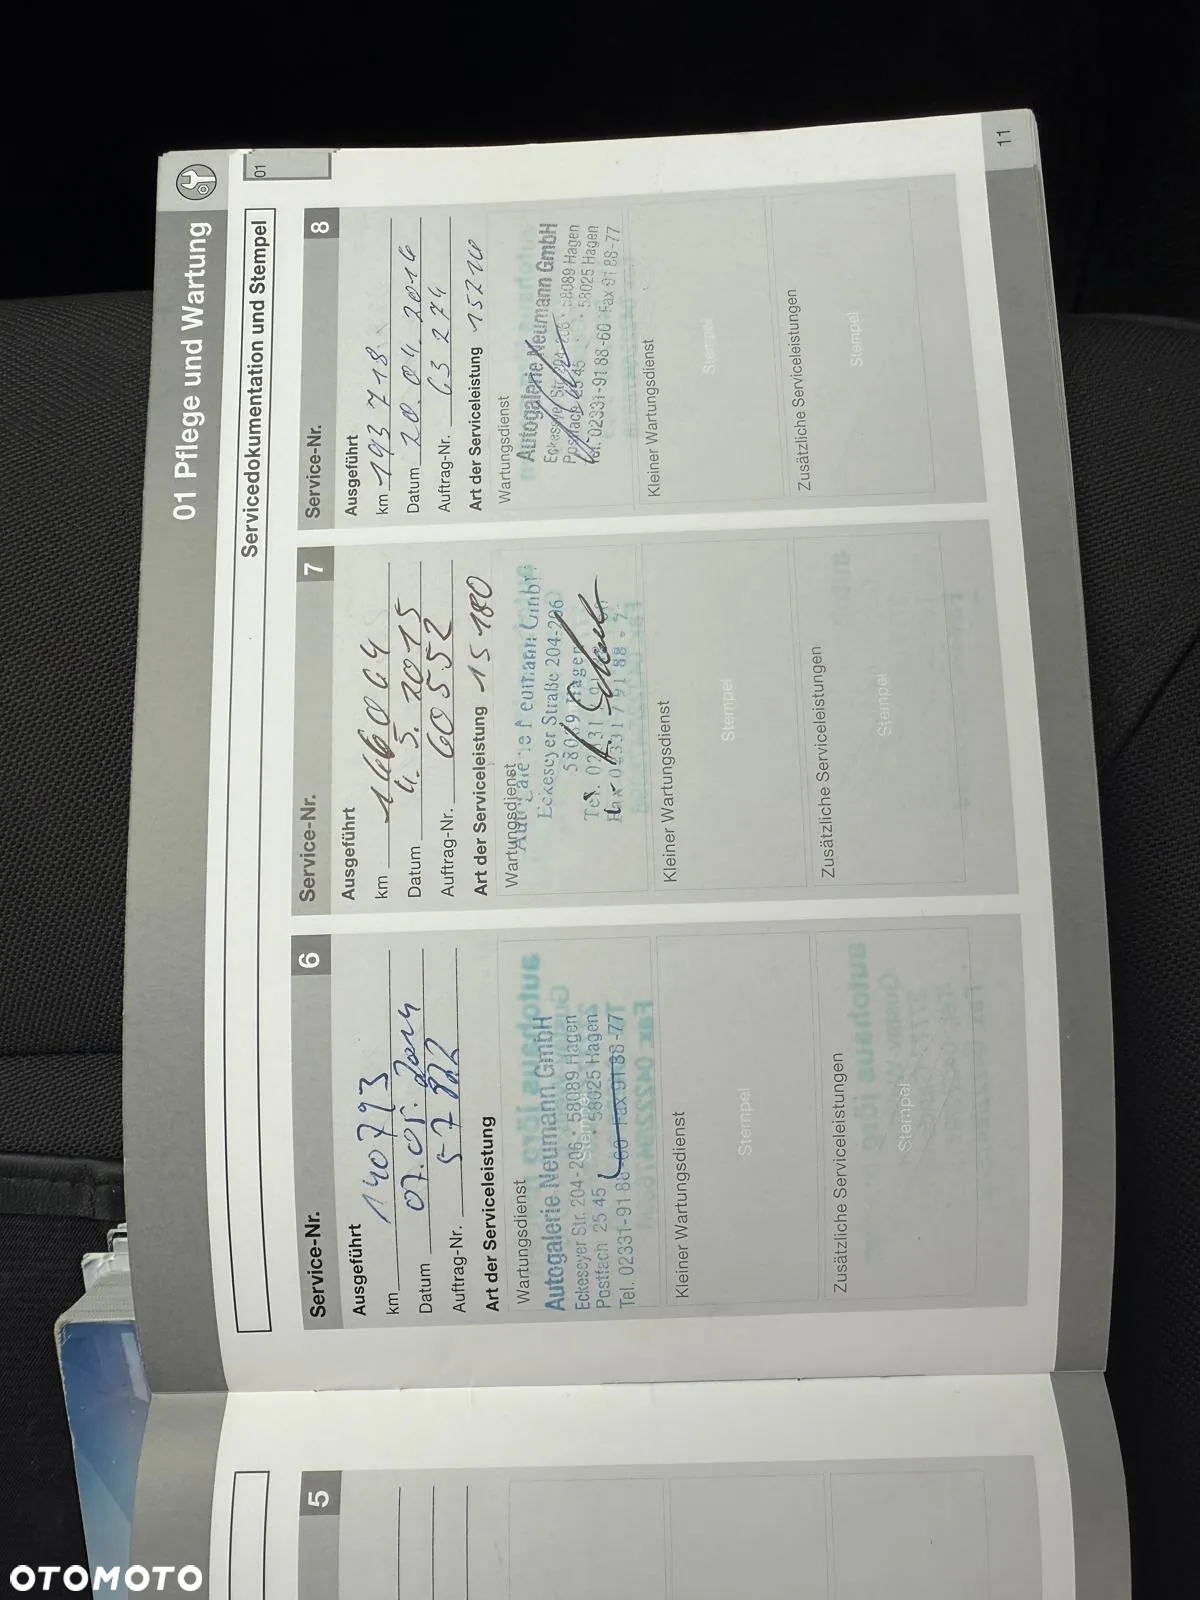 01 Pflege und Wartung
01
Servicedokumentation und Stempel
5
Service-Nr. 6
Ausgeführt
km 140793
Datum 07.05.2014
Auftrag-Nr. 57822
Art der Serviceleistung
Wartungsdienst
Autogalerie Neumann GmbH
Eckeseyer Str. 204-206 · 58089 Hagen
Postfach 25 45 · 58025 Hagen
Tel. 02331-91 88-60 Fax 91 88-77
Kleiner Wartungsdienst
Stempel
Zusätzliche Serviceleistungen
Stempel
Service-Nr. 7
Ausgeführt
km 166064
Datum 4.5.2015
Auftrag-Nr. 60552
Art der Serviceleistung 15 180
Wartungsdienst
Eckeseyer Straße 204-206
58089 Hagen
Kleiner Wartungsdienst
Stempel
Zusätzliche Serviceleistungen
Stempel
Service-Nr. 8
Ausgeführt
km 193 718
Datum 20.04.2016
Auftrag-Nr. 63 274
Art der Serviceleistung 15210
Wartungsdienst
Autogalerie Neumann GmbH
Eckeseyer Str. 204-206 · 58089 Hagen
Postfach 25 45 · 58025 Hagen
Tel. 02331-91 88-60 Fax 91 88-77
Kleiner Wartungsdienst
Stempel
Zusätzliche Serviceleistungen
Stempel
11
OTOMOTO